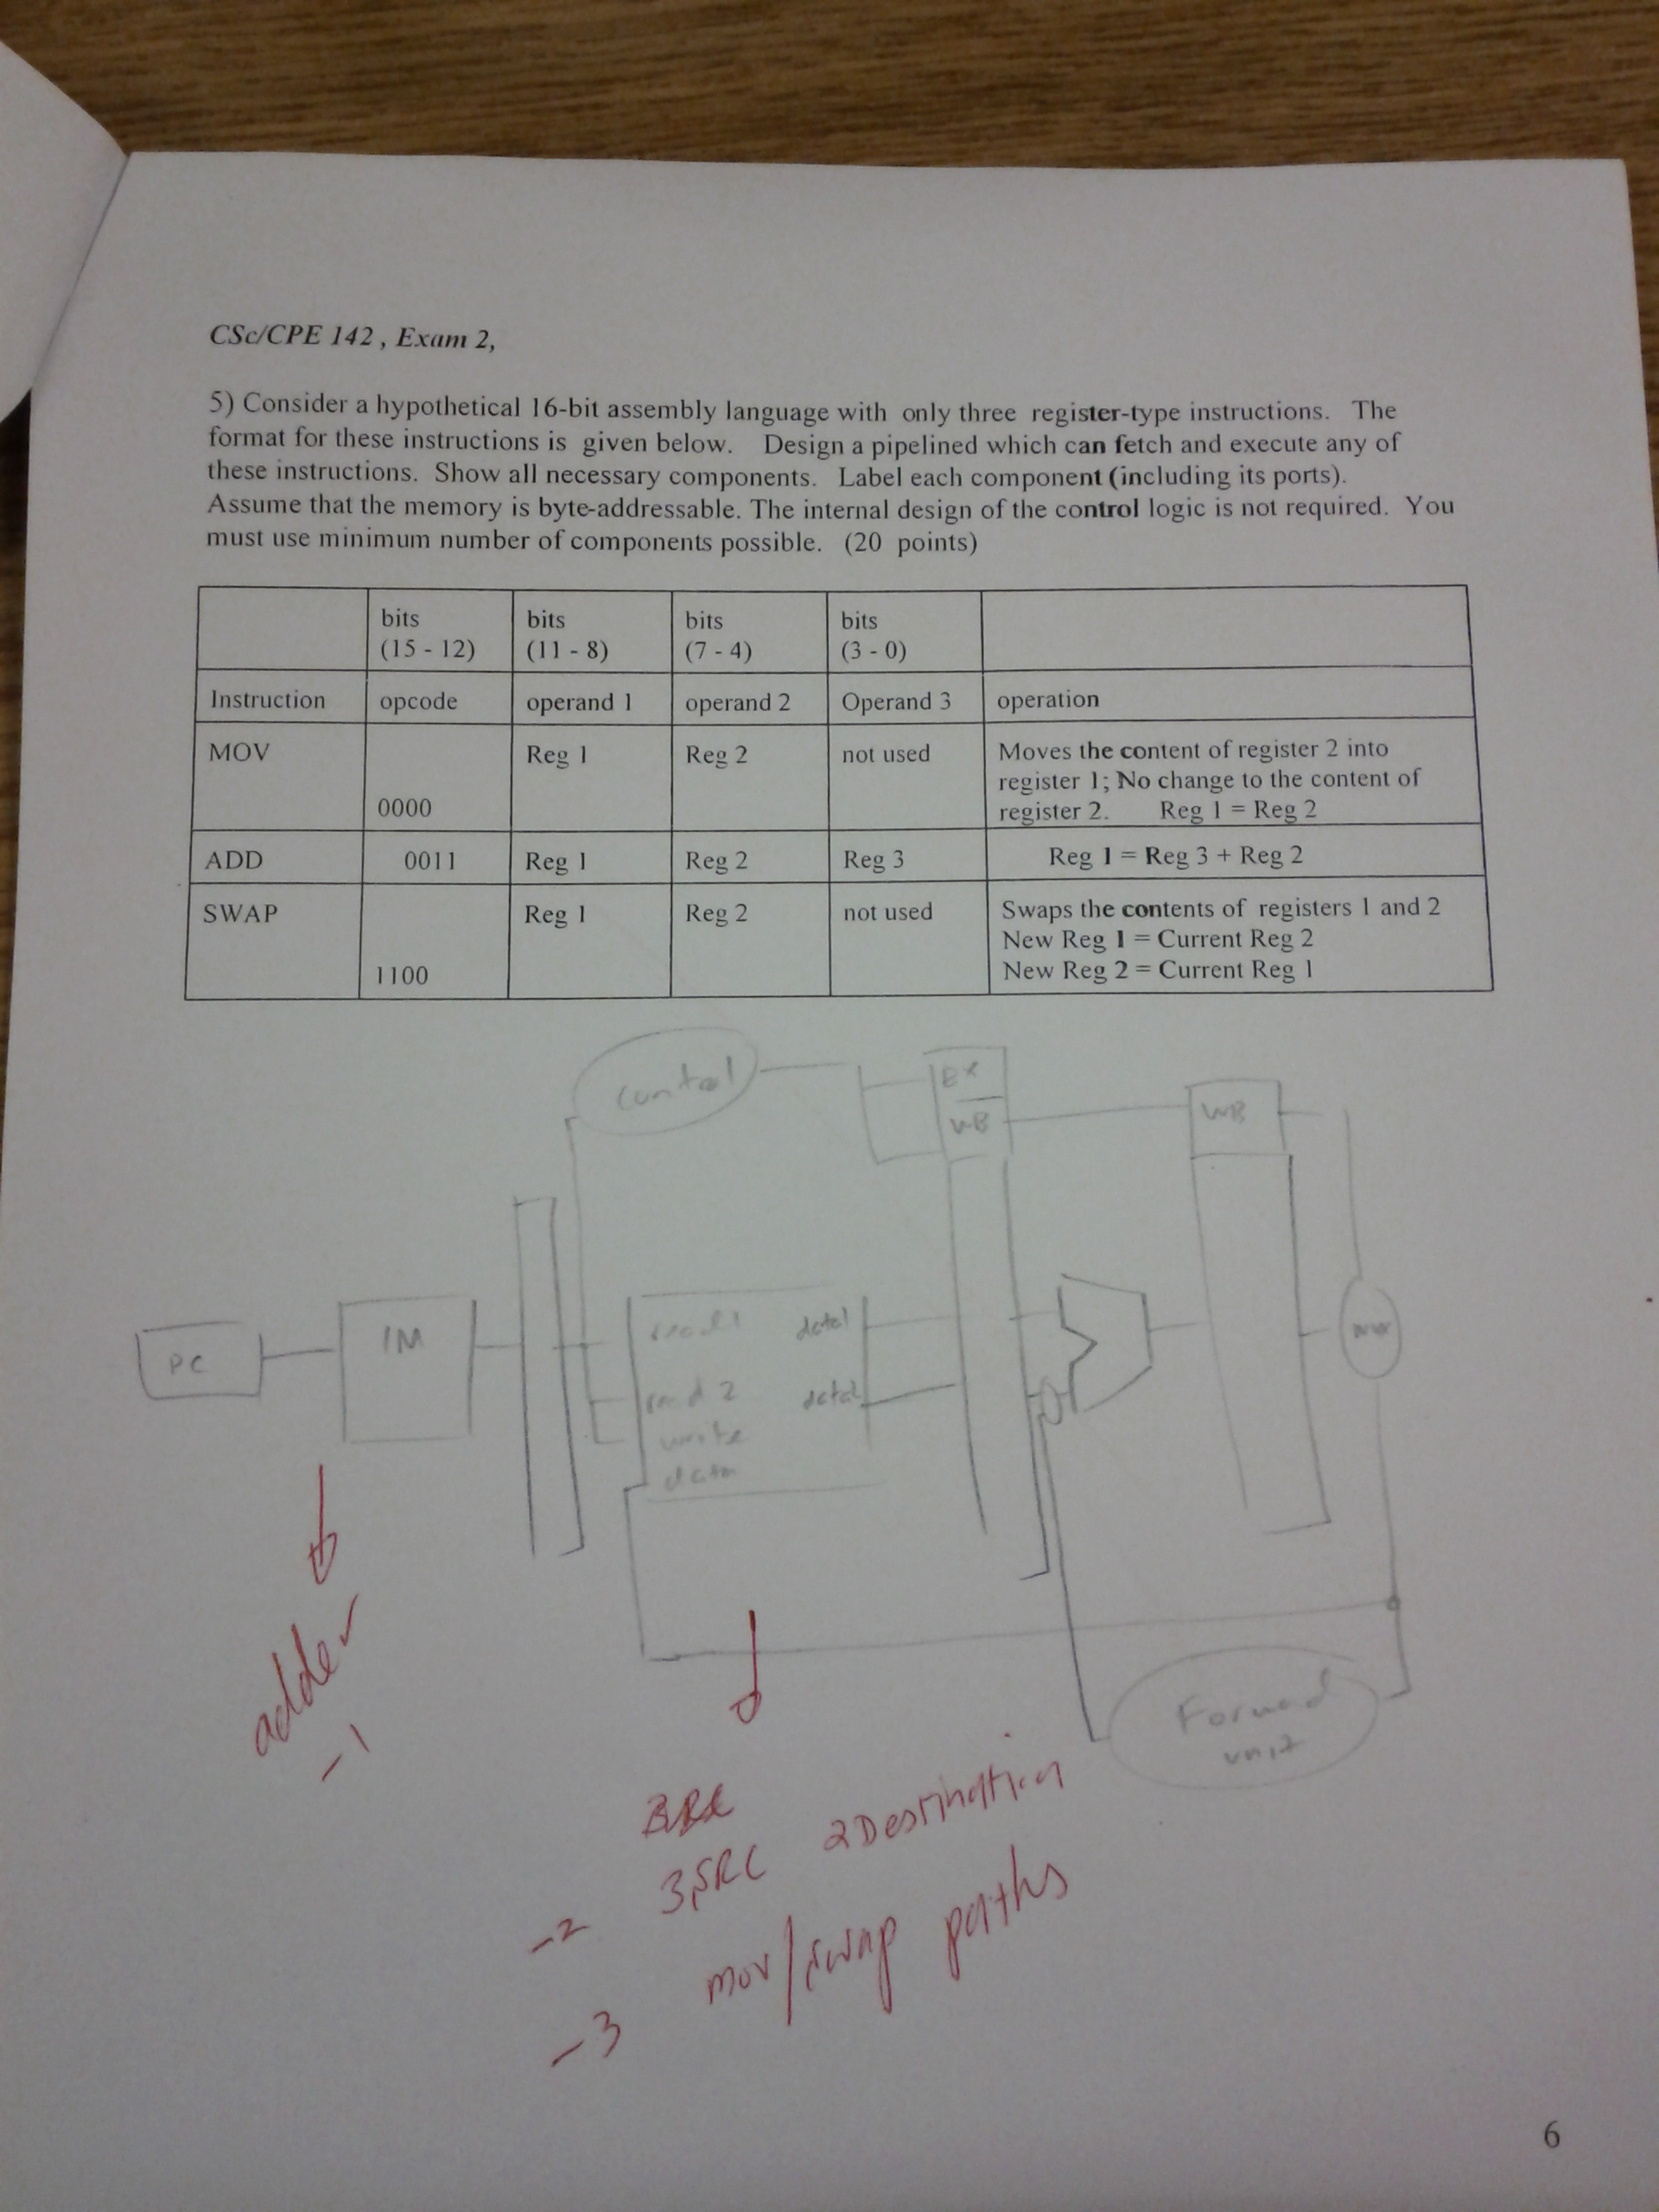 CSc/CPE 142 , Exam 2,
5) Consider a hypothetical 16-bit assembly language with only three register-type instructions. The
format for these instructions is given below. Design a pipelined which can fetch and execute any of
these instructions. Show all necessary components. Label each component (including its ports).
Assume that the memory is byte-addressable. The internal design of the control logic is not required. You
must use minimum number of components possible. (20 points)
bits bits bits bits
(15 - 12) (11 - 8) (7 - 4) (3 - 0)
Instruction opcode operand 1 operand 2 Operand 3 operation
MOV Reg 1 Reg 2 not used Moves the content of register 2 into
register 1; No change to the content of
0000 register 2. Reg 1 = Reg 2
ADD 0011 Reg 1 Reg 2 Reg 3 Reg 1 = Reg 3 + Reg 2
SWAP Reg 1 Reg 2 not used Swaps the contents of registers 1 and 2
New Reg 1 = Current Reg 2
1100 New Reg 2 = Current Reg 1
control
EX
WB
WB
PC
IM
read1 data1
read 2 data2
write
data
Forward
unit
adder
-1
3 SRC 2 Destination
-2
mov/swap paths
-3
6